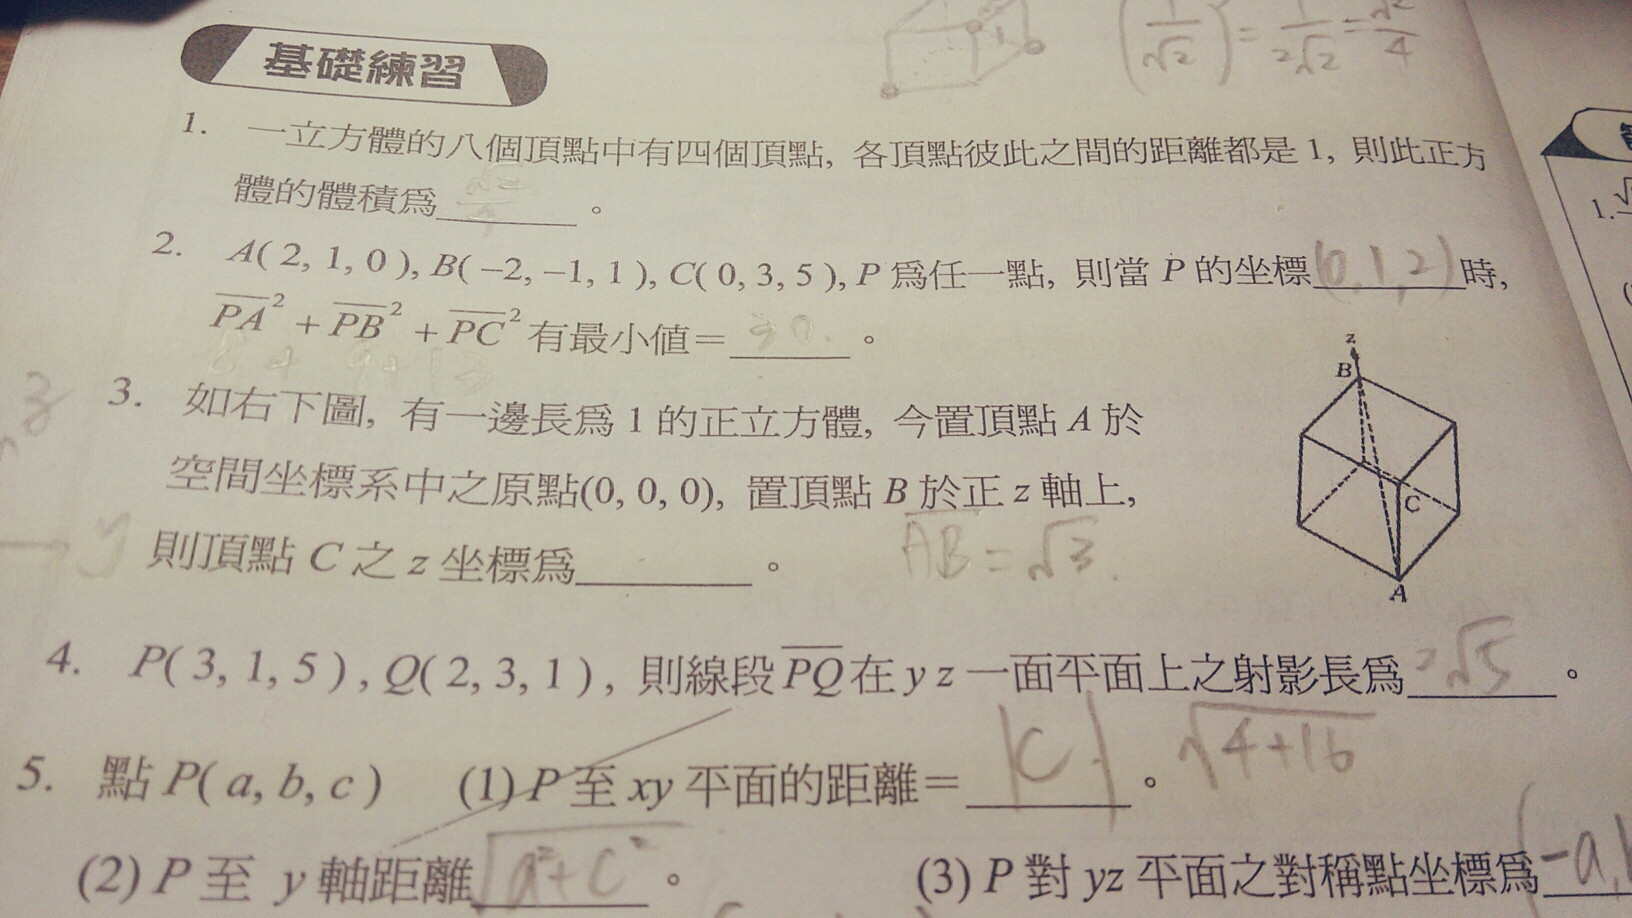 基礎練習
(1/√2) = 1/2√2 = √2/4
1. 一立方體的八個頂點中有四個頂點, 各頂點彼此之間的距離都是1, 則此正方
體的體積爲______。
2. A( 2, 1, 0 ), B( −2, −1, 1 ), C( 0, 3, 5 ), P 爲任一點, 則當 P 的坐標(0,1,2)時,
PA² + PB² + PC² 有最小値＝30。
3. 如右下圖, 有一邊長爲 1 的正立方體, 今置頂點 A 於
空間坐標系中之原點(0, 0, 0), 置頂點 B 於正 z 軸上,
則頂點 C 之 z 坐標爲______。
AB = √3
z
B
C
A
4. P( 3, 1, 5 ) , Q( 2, 3, 1 ) , 則線段PQ在 y z 一面平面上之射影長爲2√5。
√4+16
5. 點 P( a, b, c ) (1) P 至 xy 平面的距離＝|C|。
(2) P 至 y 軸距離√a²+c²。 (3) P 對 yz 平面之對稱點坐標爲(-a,b
1.